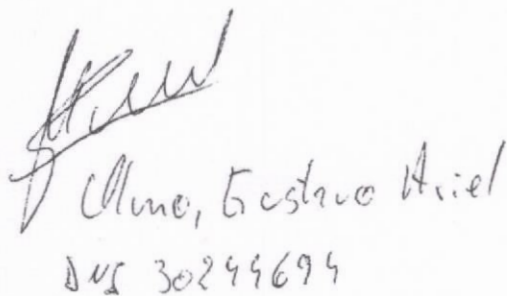 Gustavo Ariel
DNI 30244694